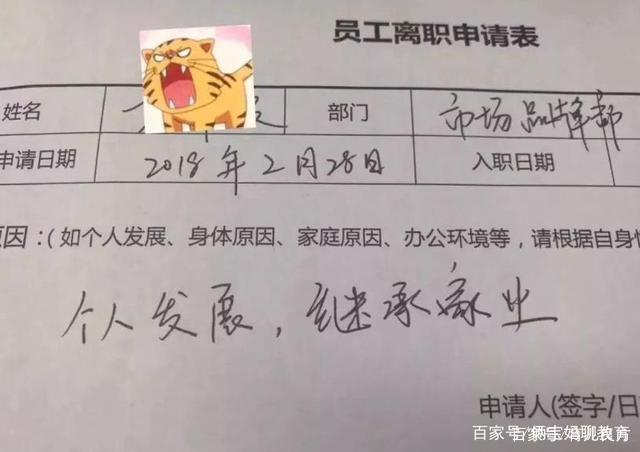 员工离职申请表
姓名 部门 市场品牌部
申请日期 2018年2月28日 入职日期
原因：(如个人发展、身体原因、家庭原因、办公环境等，请根据自身情
个人发展，继承家业
申请人(签字/日
百家号